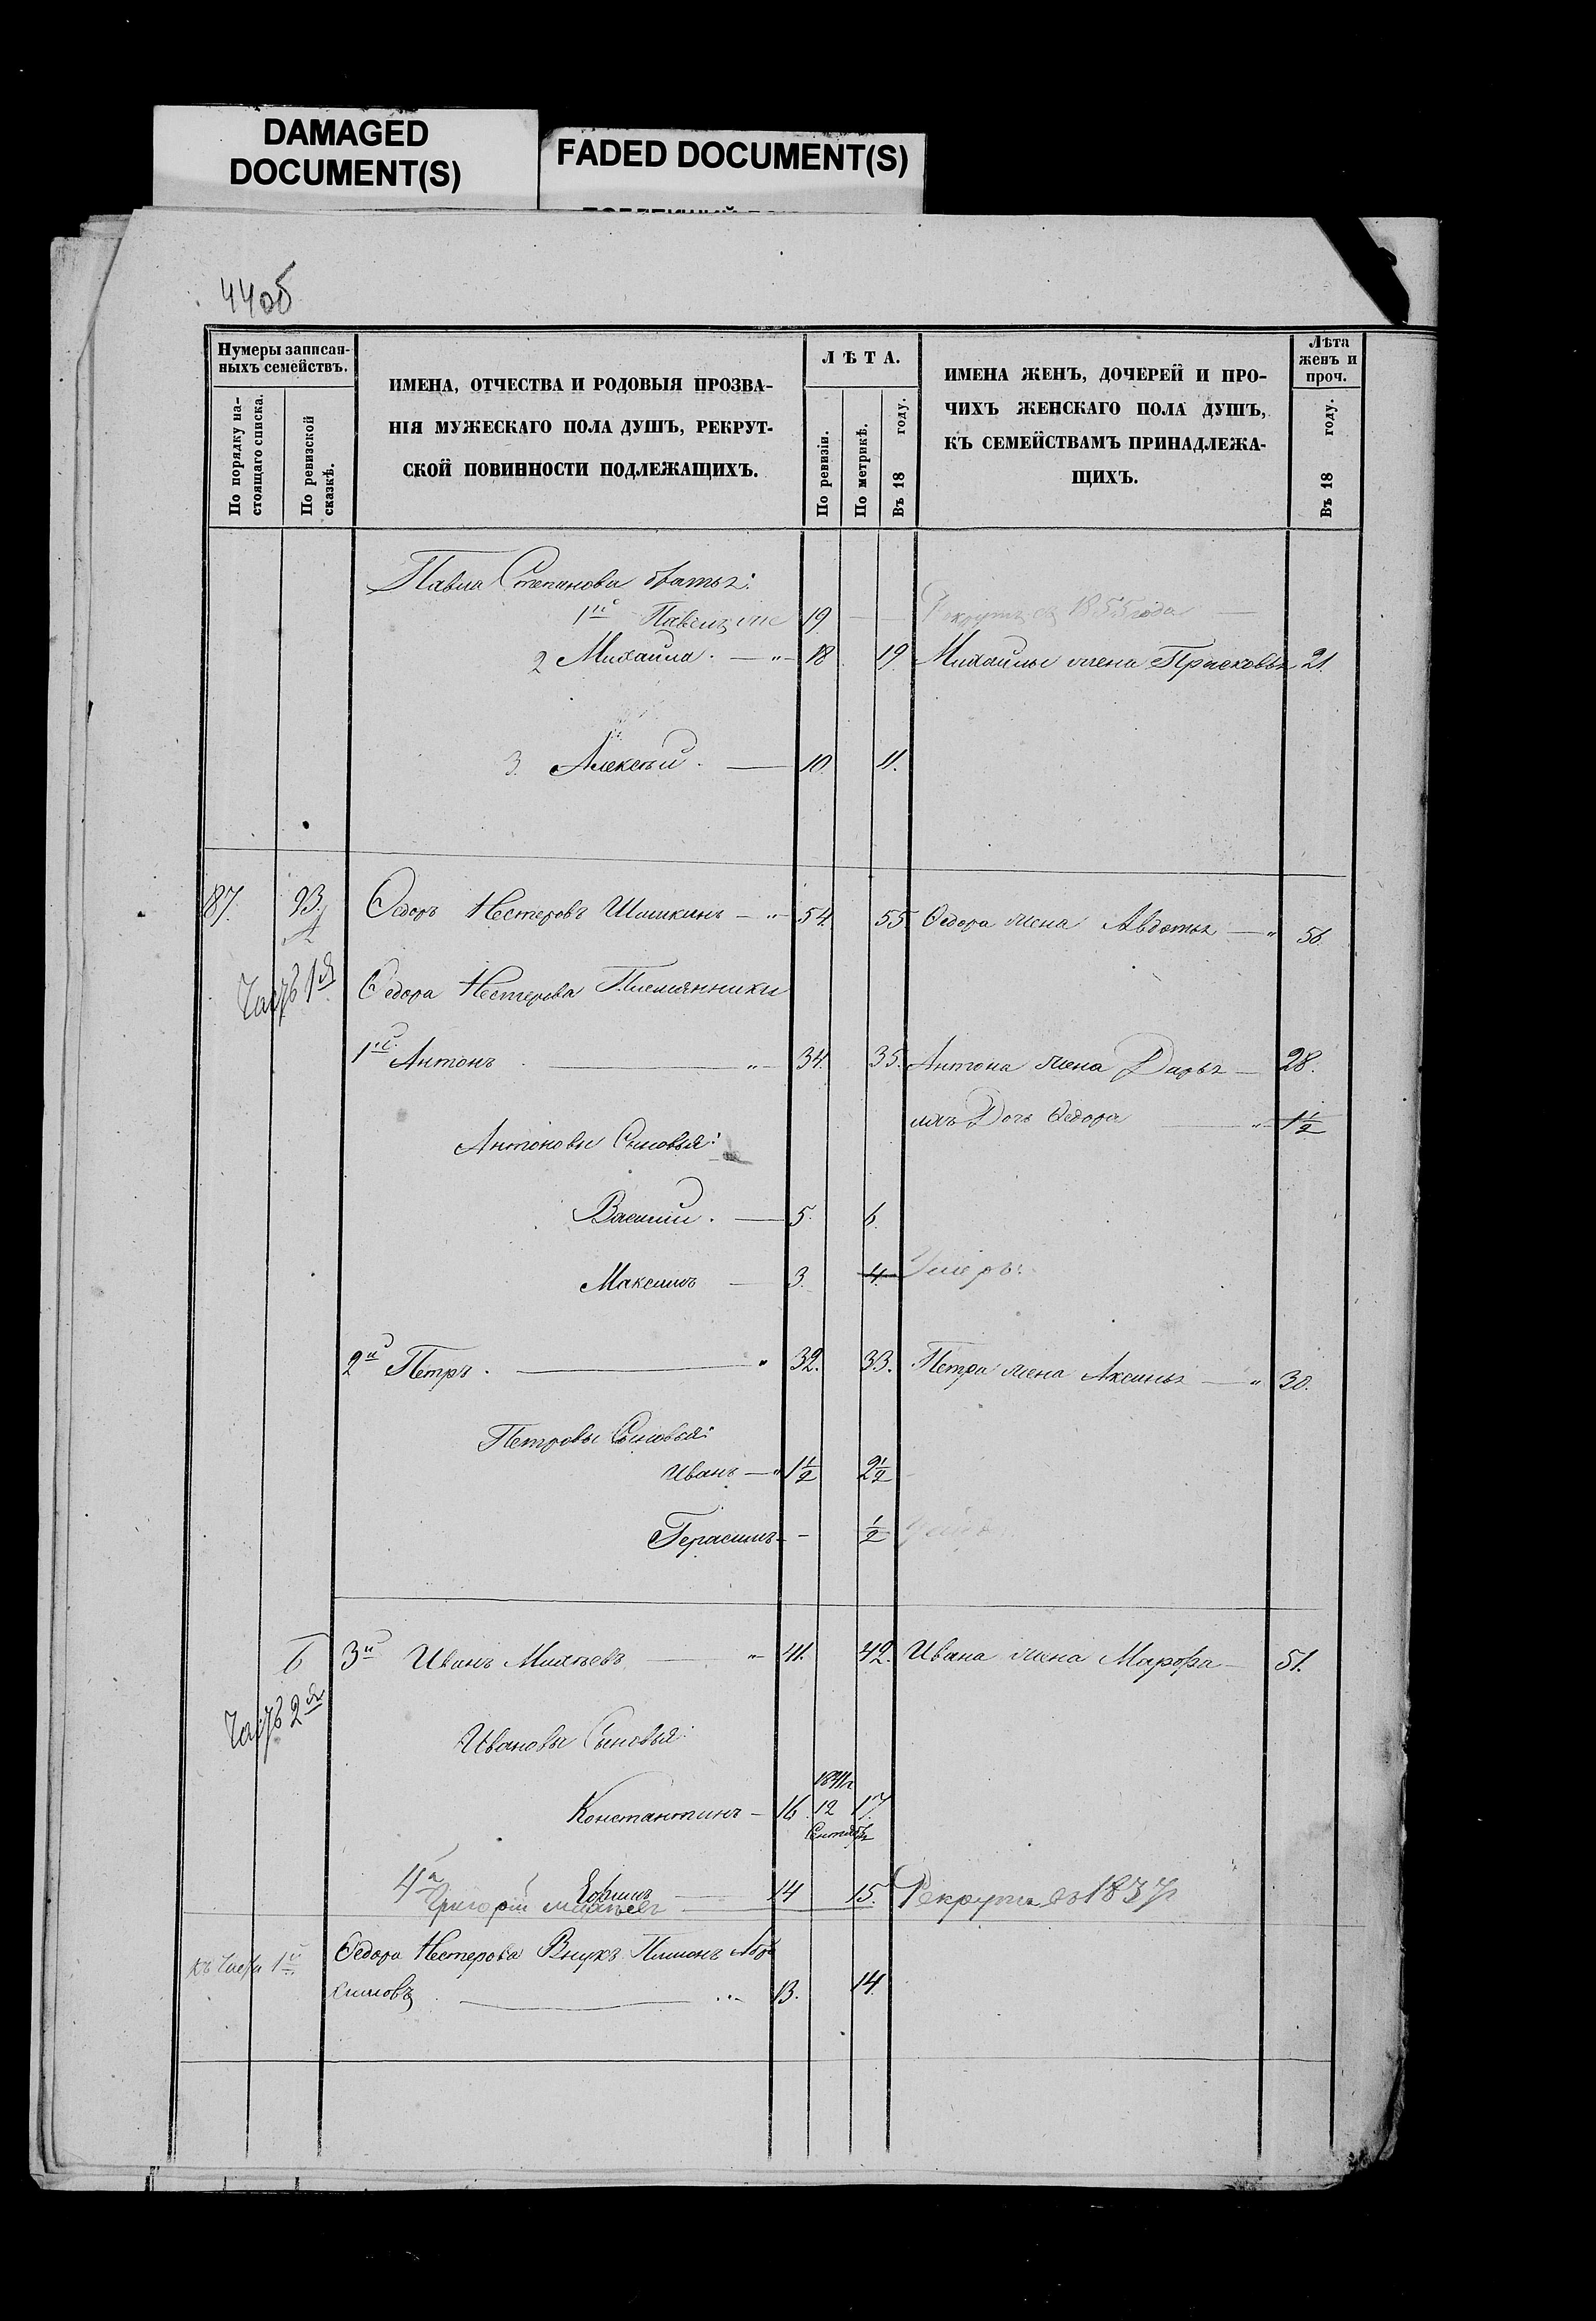 DAMAGED
DOCUMENT(S)
FADED DOCUMENT(S)
44об
Нумеры записан-
ныхъ семействъ.
По порядку на-
стоящаго списка.
По ревизской
сказкѣ.
ИМЕНА, ОТЧЕСТВА И РОДОВЫЯ ПРОЗВА-
НІЯ МУЖЕСКАГО ПОЛА ДУШЪ, РЕКРУТ-
СКОЙ ПОВИННОСТИ ПОДЛЕЖАЩИХЪ.
ЛѢТА.
По ревизіи.
По метрикѣ.
Въ 18 году.
ИМЕНА ЖЕНЪ, ДОЧЕРЕЙ И ПРО-
ЧИХЪ ЖЕНСКАГО ПОЛА ДУШЪ,
КЪ СЕМЕЙСТВАМЪ ПРИНАДЛЕЖА-
ЩИХЪ.
Лѣта
женъ и
проч.
Въ 18 году.
Павла Степанова братья:
1й Павелъ 19 — — Рекрутъ 1855 года —
2 Михайла. — „ — 18 19. Михайлы жена Прасковья 21.
3. Алексѣй. — 10. 11.
87. 93. Ѳедоръ Нестеровъ Шишкинъ — „ — 54. 55. Ѳедора жена Авдотья — „ 56.
А
Часть 1я Ѳедора Нестерова Племянники
1й Антонъ — „ — 34. 35. Антона жена Дарья — 28.
ихъ Дочь Ѳедора — „ — 1½
Антоновы Сыновья:
Василій. — 5. 6.
Максимъ — 3. 4. Умеръ.
2й Петръ. — „ 32. 33. Петра жена Аксинья — „ 30.
Петровы Сыновья:
Иванъ — „ 1½ 2½
Герасимъ — — ½
Б 3й Иванъ Михѣевъ — „ — 41. 42. Ивана жена Марфа — 51.
Часть 2я
Ивановы Сыновья:
1841г
Константинъ — 16. 12 17.
Сентября
Ефимъ — 14 15. Рекрутъ въ 1857г
4й Григорій Михѣевъ
къ части 1й. Ѳедора Нестерова Внукъ
кимовъ — 13. 14.